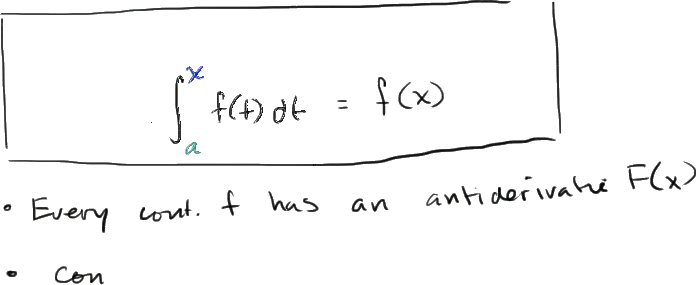 ∫ₐˣ f(t) dt = f(x)
• Every cont. f has an antiderivative F(x)
• Con